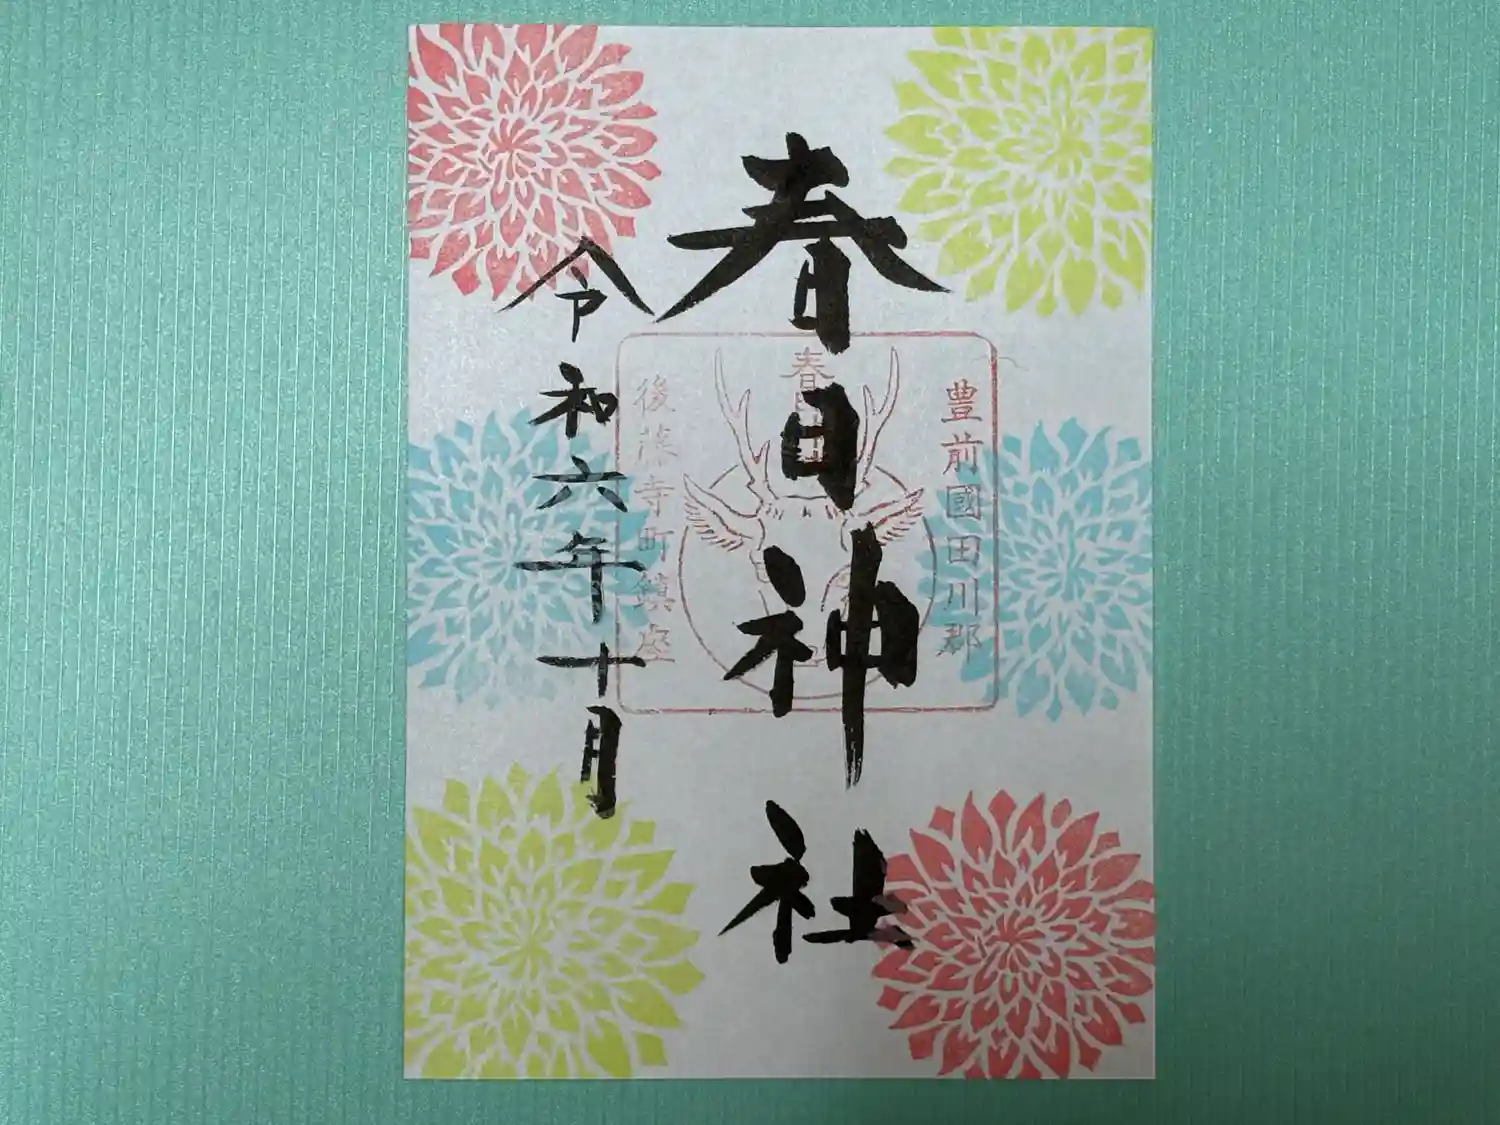 豊前國田川郡
春日神社
後藤寺町鎮座
令和六年十月